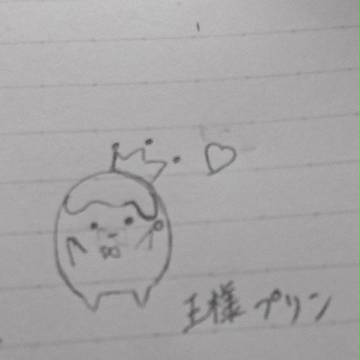 王様プリン